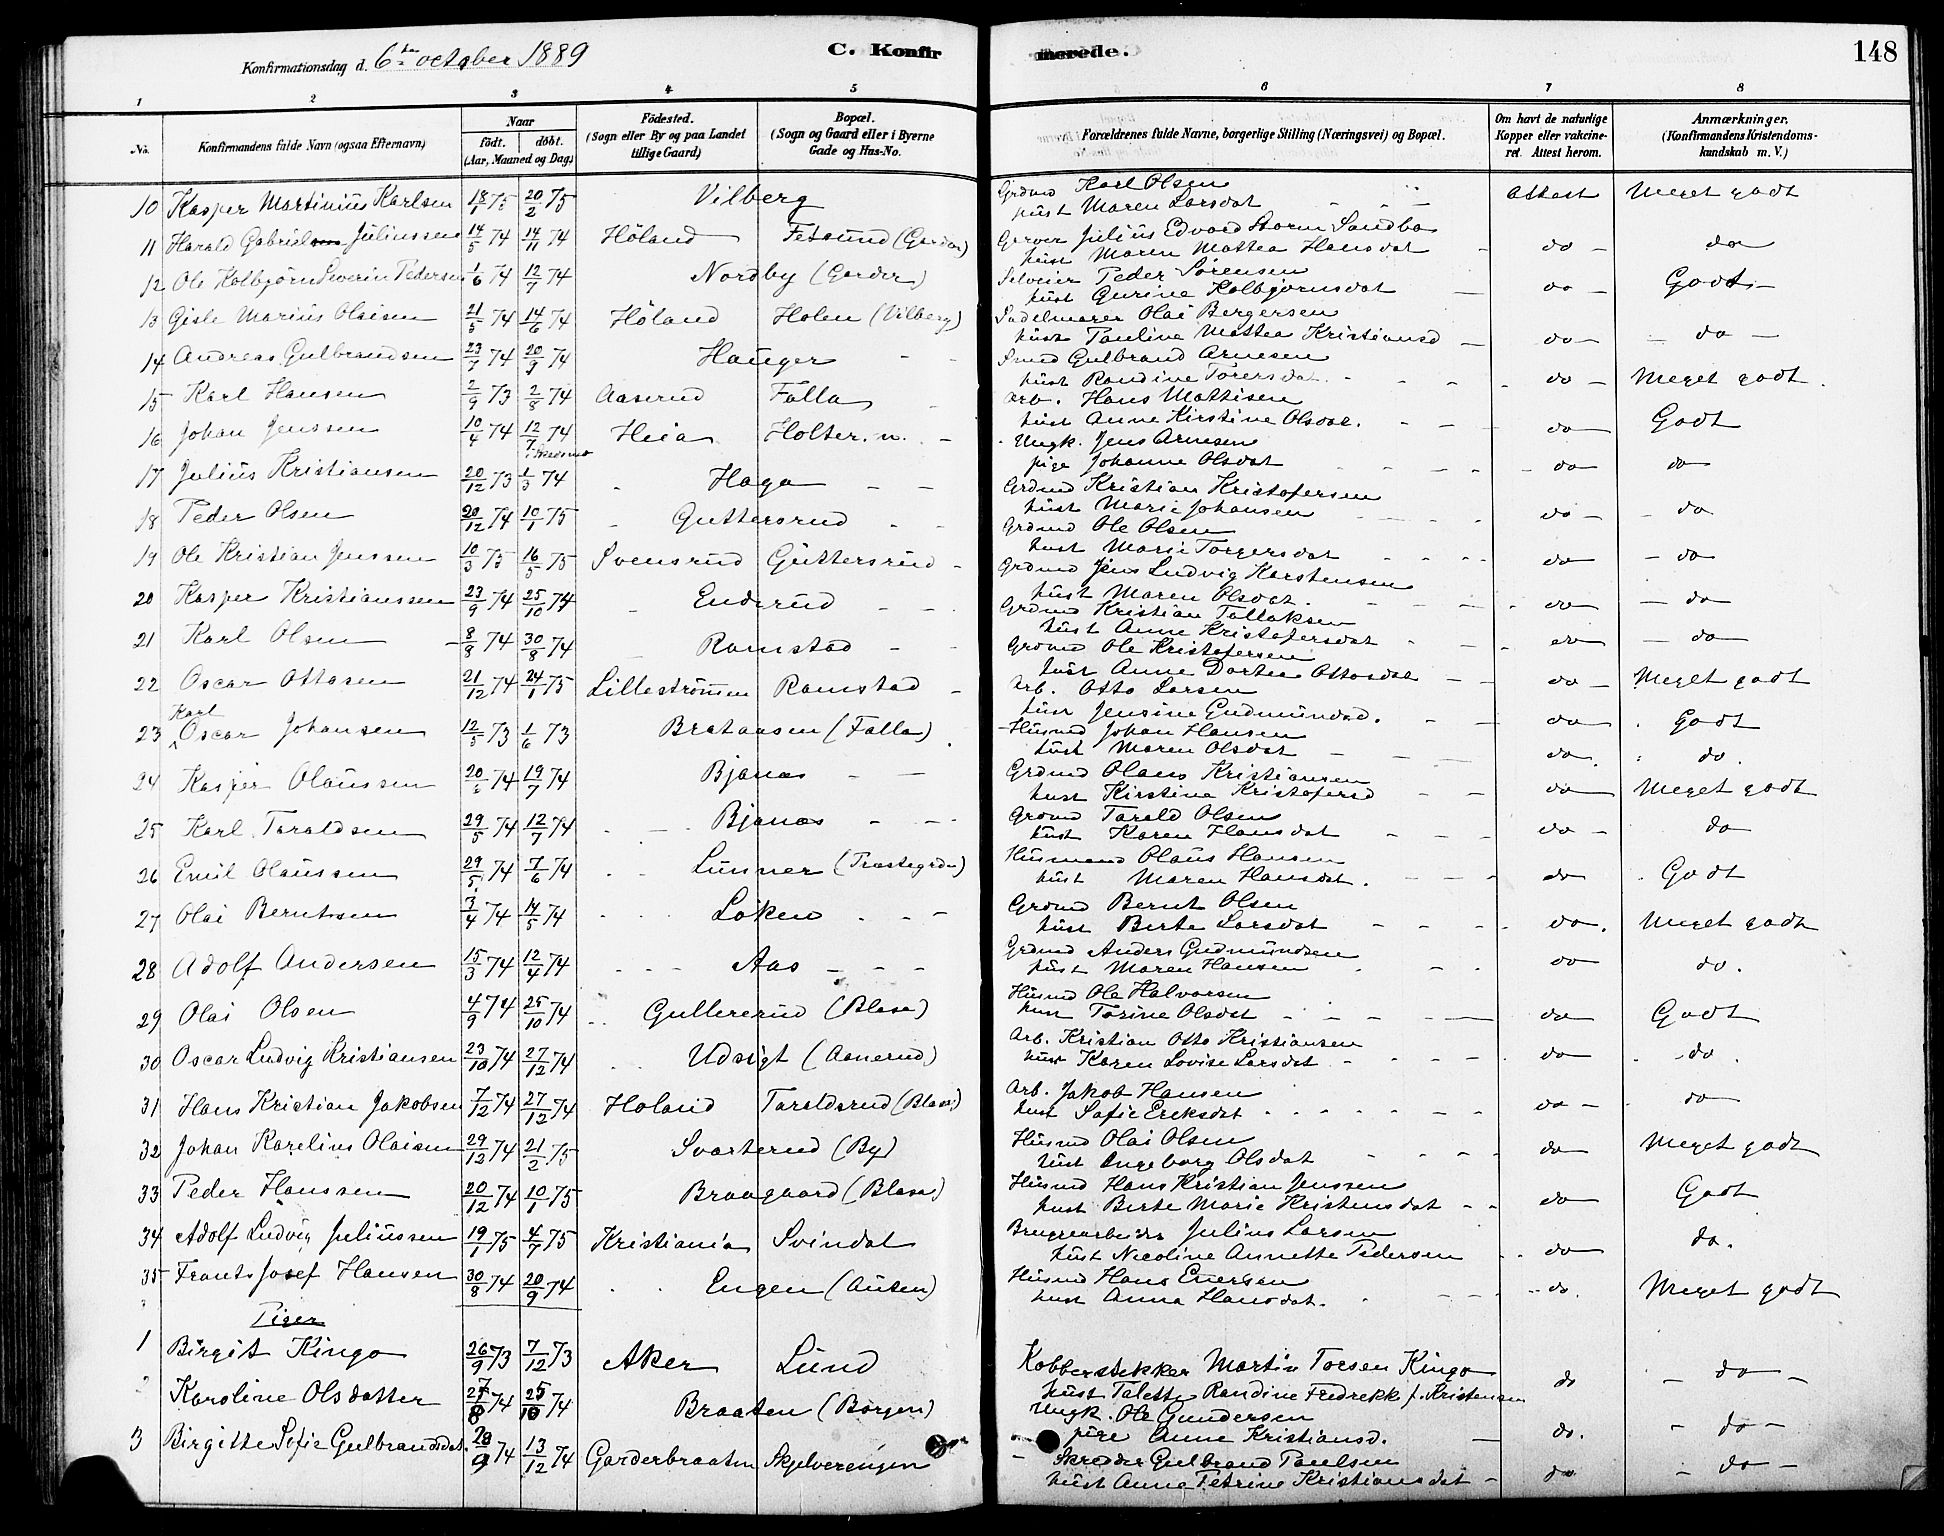 Konfirmationsdag d. 6te october 1889
C. Konfirmerede.
148
1 2 3 4 5 6 7 8
No.
Konfirmandens fulde Navn (ogsaa Efternavn)
Naar
født. døbt.
(Aar, Maaned og Dag)
Fødested.
(Sogn eller By og paa Landet tillige Gaard)
Bopæl.
(Sogn og Gaard eller i Byerne Gade og Hus-No.
Forældrenes fulde Navne, borgerlige Stilling (Næringsvei) og Bopæl.
Om havt de naturlige Kopper eller vakcineret. Attest herom.
Anmærkninger.
(Konfirmandens Kristendomskundskab m. V.)
10 Kasper Martinius Karlsen 18/1 75 20/2 75 Vilberg Grdmd Karl Olsen hust Maren Larsdat Attest Meget godt
11 Harald Gabriel Juliussen 14/5 74 14/11 74 Høland Fetsund Garver Julius Edvard Storm Sandbo hust Maren Mattea Hansdat do do
12 Ole Kolbjørn Severin Pedersen 1/6 74 12/7 74 Nordby (Garder) Selveier Peder Sørensen hust Gurine Kolbjørnsdat do Godt
13 Gisle Marius Olaisen 21/5 74 14/6 74 Høland Holen (Vilberg) Sadelmager Olai Bergersen hust Pauline Mattea Kristiansd do do
14 Andreas Gulbrandsen 23/7 74 20/9 74 Hauger Smed Gulbrand Arnesen hust Randine Torersdat do Meget godt
15 Karl Hansen 2/9 73 2/8 74 Aaserud Falla Arb. Hans Mattisen hust Anne Kirstine Olsdat do Godt
16 Johan Jenssen 10/4 74 12/7 74 Heia Holter. n. Ungk. Jens Arnesen pige Johanne Olsdat do do
17 Julius Kristiansen 20/12 73 1/3 74 Haga Grdmd Kristian Kristofersen hust Marie Johansen do do
18 Peder Olsen 20/12 74 10/1 75 Guttersrud Grdmd Ole Olsen hust Marie Torgersdat do do
19 Ole Kristian Jenssen 10/3 75 16/5 75 Svensrud Guttersrud Grdmd Jens Ludvig Karstensen hust Maren Olsdat do do
20 Kasper Kristianssen 23/9 74 25/10 74 Enderud Grdmd Kristian Tallaksen hust Anne Kristofersdat do do
21 Karl Olsen 8/8 74 30/8 74 Ramstad Grdmd Ole Kristofersen hust Anne Dortea Ottosdat do Meget godt
22 Oscar Ottosen 21/12 74 24/1 75 Lillestrømmen Ramstad Arb. Otto Larsen hust Jensine Gudmundsd. do Godt
23 Karl Oscar Johansen 12/5 73 1/6 73 Brataasen (Falla) Husmd Johan Hansen hust Maren Olsdat do do
24 Kasper Olaussen 20/6 74 19/7 74 Bjanæs Grdmd Olaus Kristiansen hust Kirstine Kristofersd do Meget godt
25 Karl Taraldsen 29/5 74 12/7 74 Bjanæs Grdmd Tarald Olsen hust Karen Hansdat do do
26 Emil Olaussen 29/5 74 7/6 74 Lunner (Præstegrdn) Husmand Olaus Hansen hust Maren Hansdat. do Godt
27 Olai Berntsen 3/4 74 14/5 74 Løken Grdmd Bernt Olsen hust Berte Larsdat do. Meget godt
28 Adolf Andersen 15/3 74 12/4 74 Aas Grdmd Anders Gudmundsen hust Maren Hansen do do.
29 Olai Olsen 4/9 74 25/10 74 Gullererud Husmd Ole Halvorsen hust Torine Olsdat do Godt
30 Oscar Ludvig Kristiansen 23/10 74 27/12 74 Udsigt (Aanerud) Arb. Kristian Otto Kristiansen hust Karen Lovise Larsdat do do.
31 Hans Kristian Jakobsen 7/12 74 27/12 74 Høland Taraldsrud Arb. Jakob Hansen hust Sofie Ereksdat do do
32 Johan Karelius Olaisen 29/12 74 21/2 75 Svarterud (By) Husmd Olai Olsen hust Ingeborg Olsdat do Meget godt
33 Peder Hanssen 20/12 74 10/1 75 Braagaard Husmd Hans Kristian Jenssen hust Berte Marie Kristensdat do Godt
34 Adolf Ludvig Juliussen 19/1 75 4/7 75 Kristiania Svindal Bruggearbeider Julius Larsen hust Nicoline Annette Pedersen do do.
35 Frants Josef Hansen 30/8 74 20/9 74 Engen (Ausen) Husmd Hans Enersen hust Anna Hansdat. do. Meget godt
Piger
1 Birgit Kingo 26/9 73 7/12 73 Aker Lund Kobberstekker Martin Torsen Kingo hust Talette Randine Fredrekk f. Kristensen do do
2 Karoline Olsdatter 27/8 74 25/10 74 Braaten (Børgen) Ungk. Ole Gundersen pige Anne Kristiansd. do. do
3 Birgitte Sofie Gulbrandsdat. 20/9 74 13/12 74 Garderbraaten Skjelverengen Skredder Gulbrand Paulsen hust Anne Petrine Kristiansdat do do